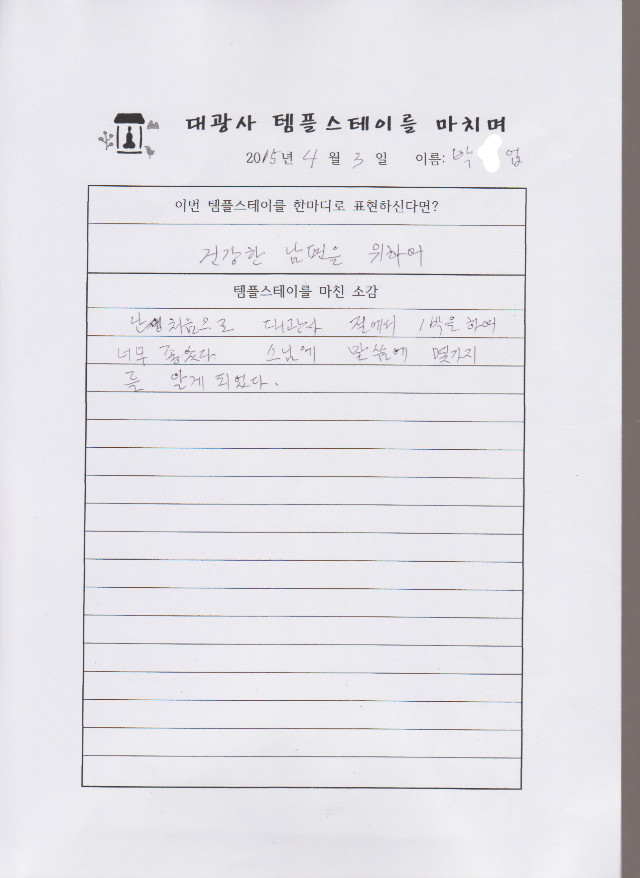 대광사 템플스테이를 마치며
2015년 4월 3일 이름: 박 업
이번 템플스테이를 한마디로 표현하신다면?
건강한 남편을 위하여
템플스테이를 마친 소감
난생처음으로 대광사 절에서 1박을 하여
너무 좋았다 스님에 말씀에 몇가지
를 알게 되었다.